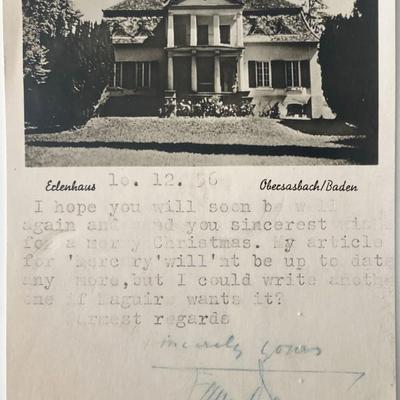 Erlenhaus 10. 12. 56 Obersasbach/Baden
I hope you will soon be well
again and you sincerest
for a merry Christmas. My article
for 'Mercury'will'nt be up to date
any more,but I could write
one if Maguire wants it?
Warmest regards
Sincerely yours